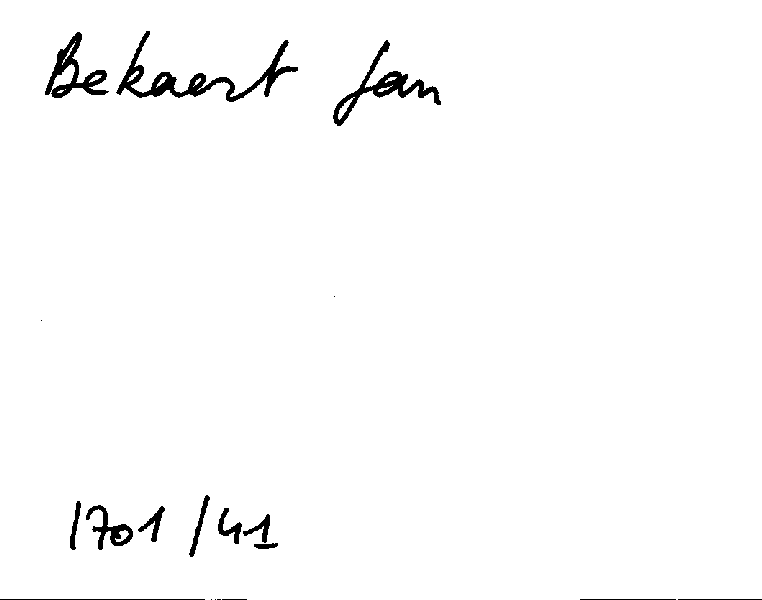 Bekaert Jan
1701 / 41